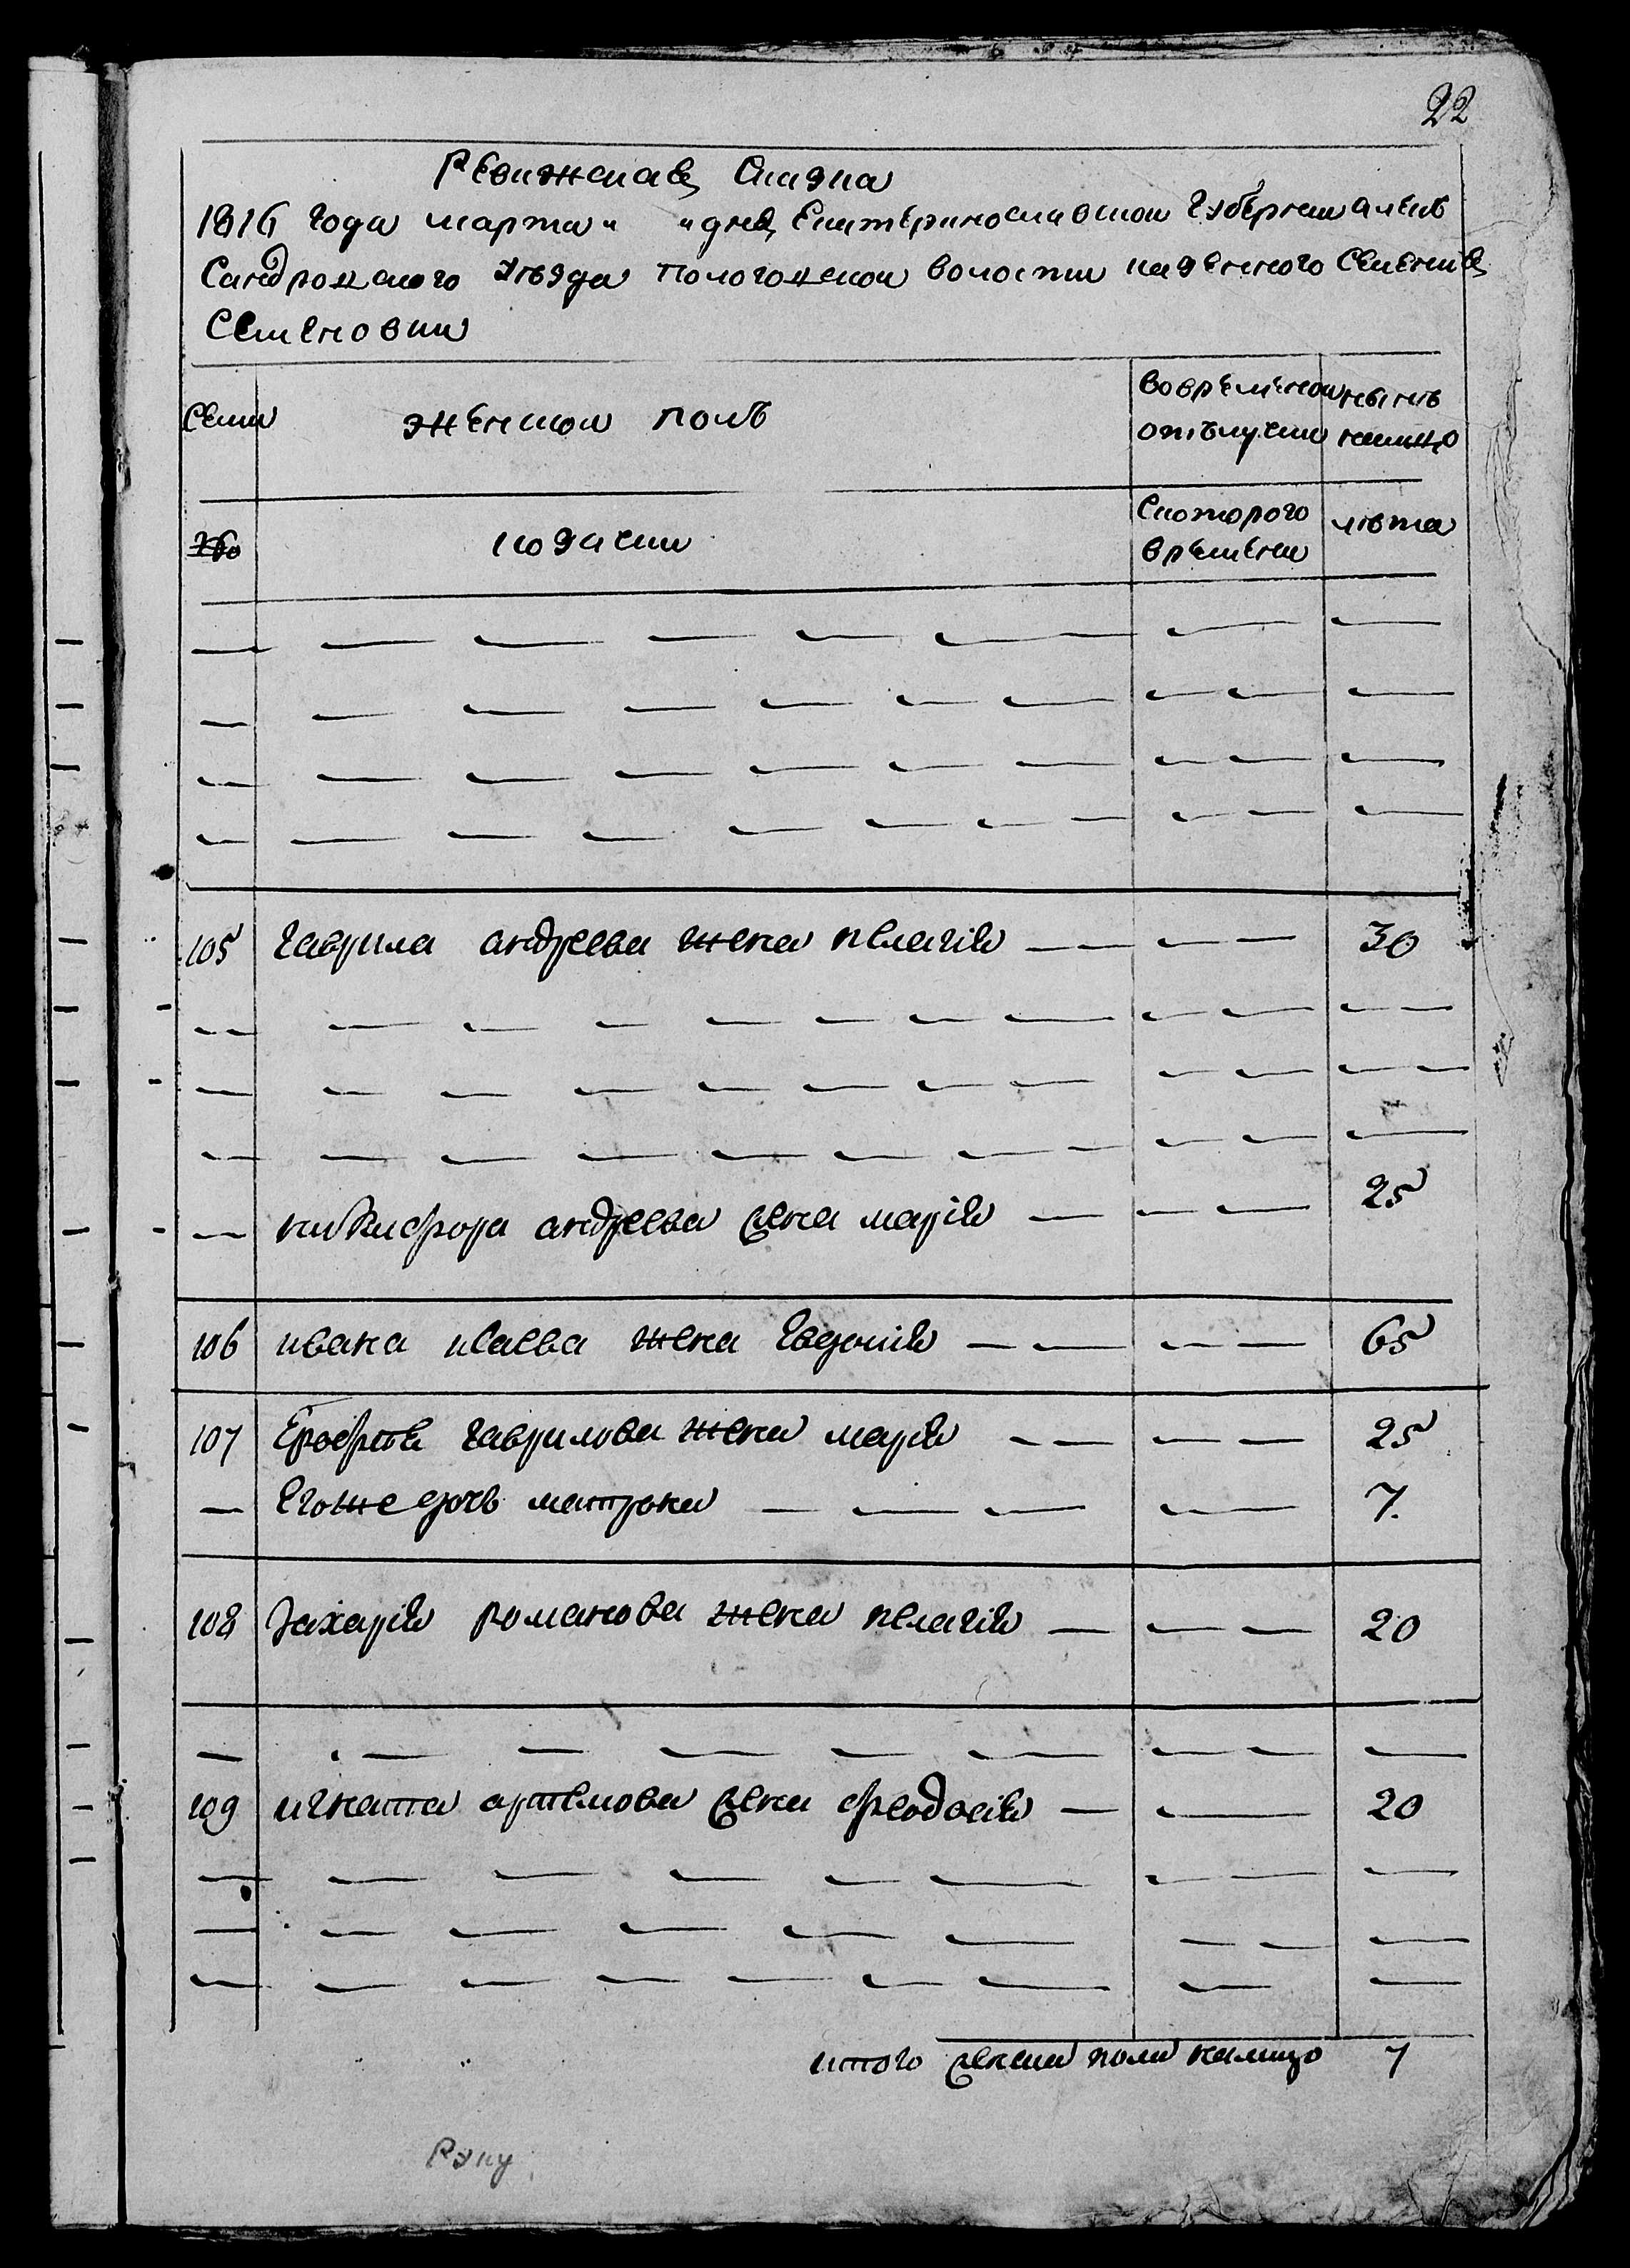 22
Ревижская Сказка
1816 года марта " " дня Екатеринославской губернии алек
сандровского уезда Пологовской волости казенного Селения
Семеновки
Семи женской полъ вовременной ныне
отлучки налицо
и козаки Скоторого лета
времени
105 гаврила андреева жена пелагия 30
никифора андреева жена мария 25
106 ивана исаева жена Евдокия 65
107 Ерофея гаврилова жена мария 25
Егоже дочь матрона 7.
108 Захария романова жена пелагия 20
109 игната артемова жена феодосия 20
итого женска пола налицо 7
Рэку